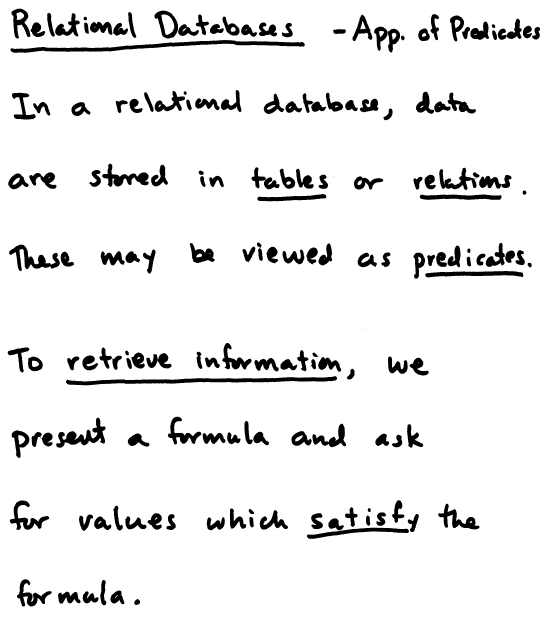 Relational Databases - App. of Predicates
In a relational database, data
are stored in tables or relations.
These may be viewed as predicates.
To retrieve information, we
present a formula and ask
for values which satisfy the
formula.